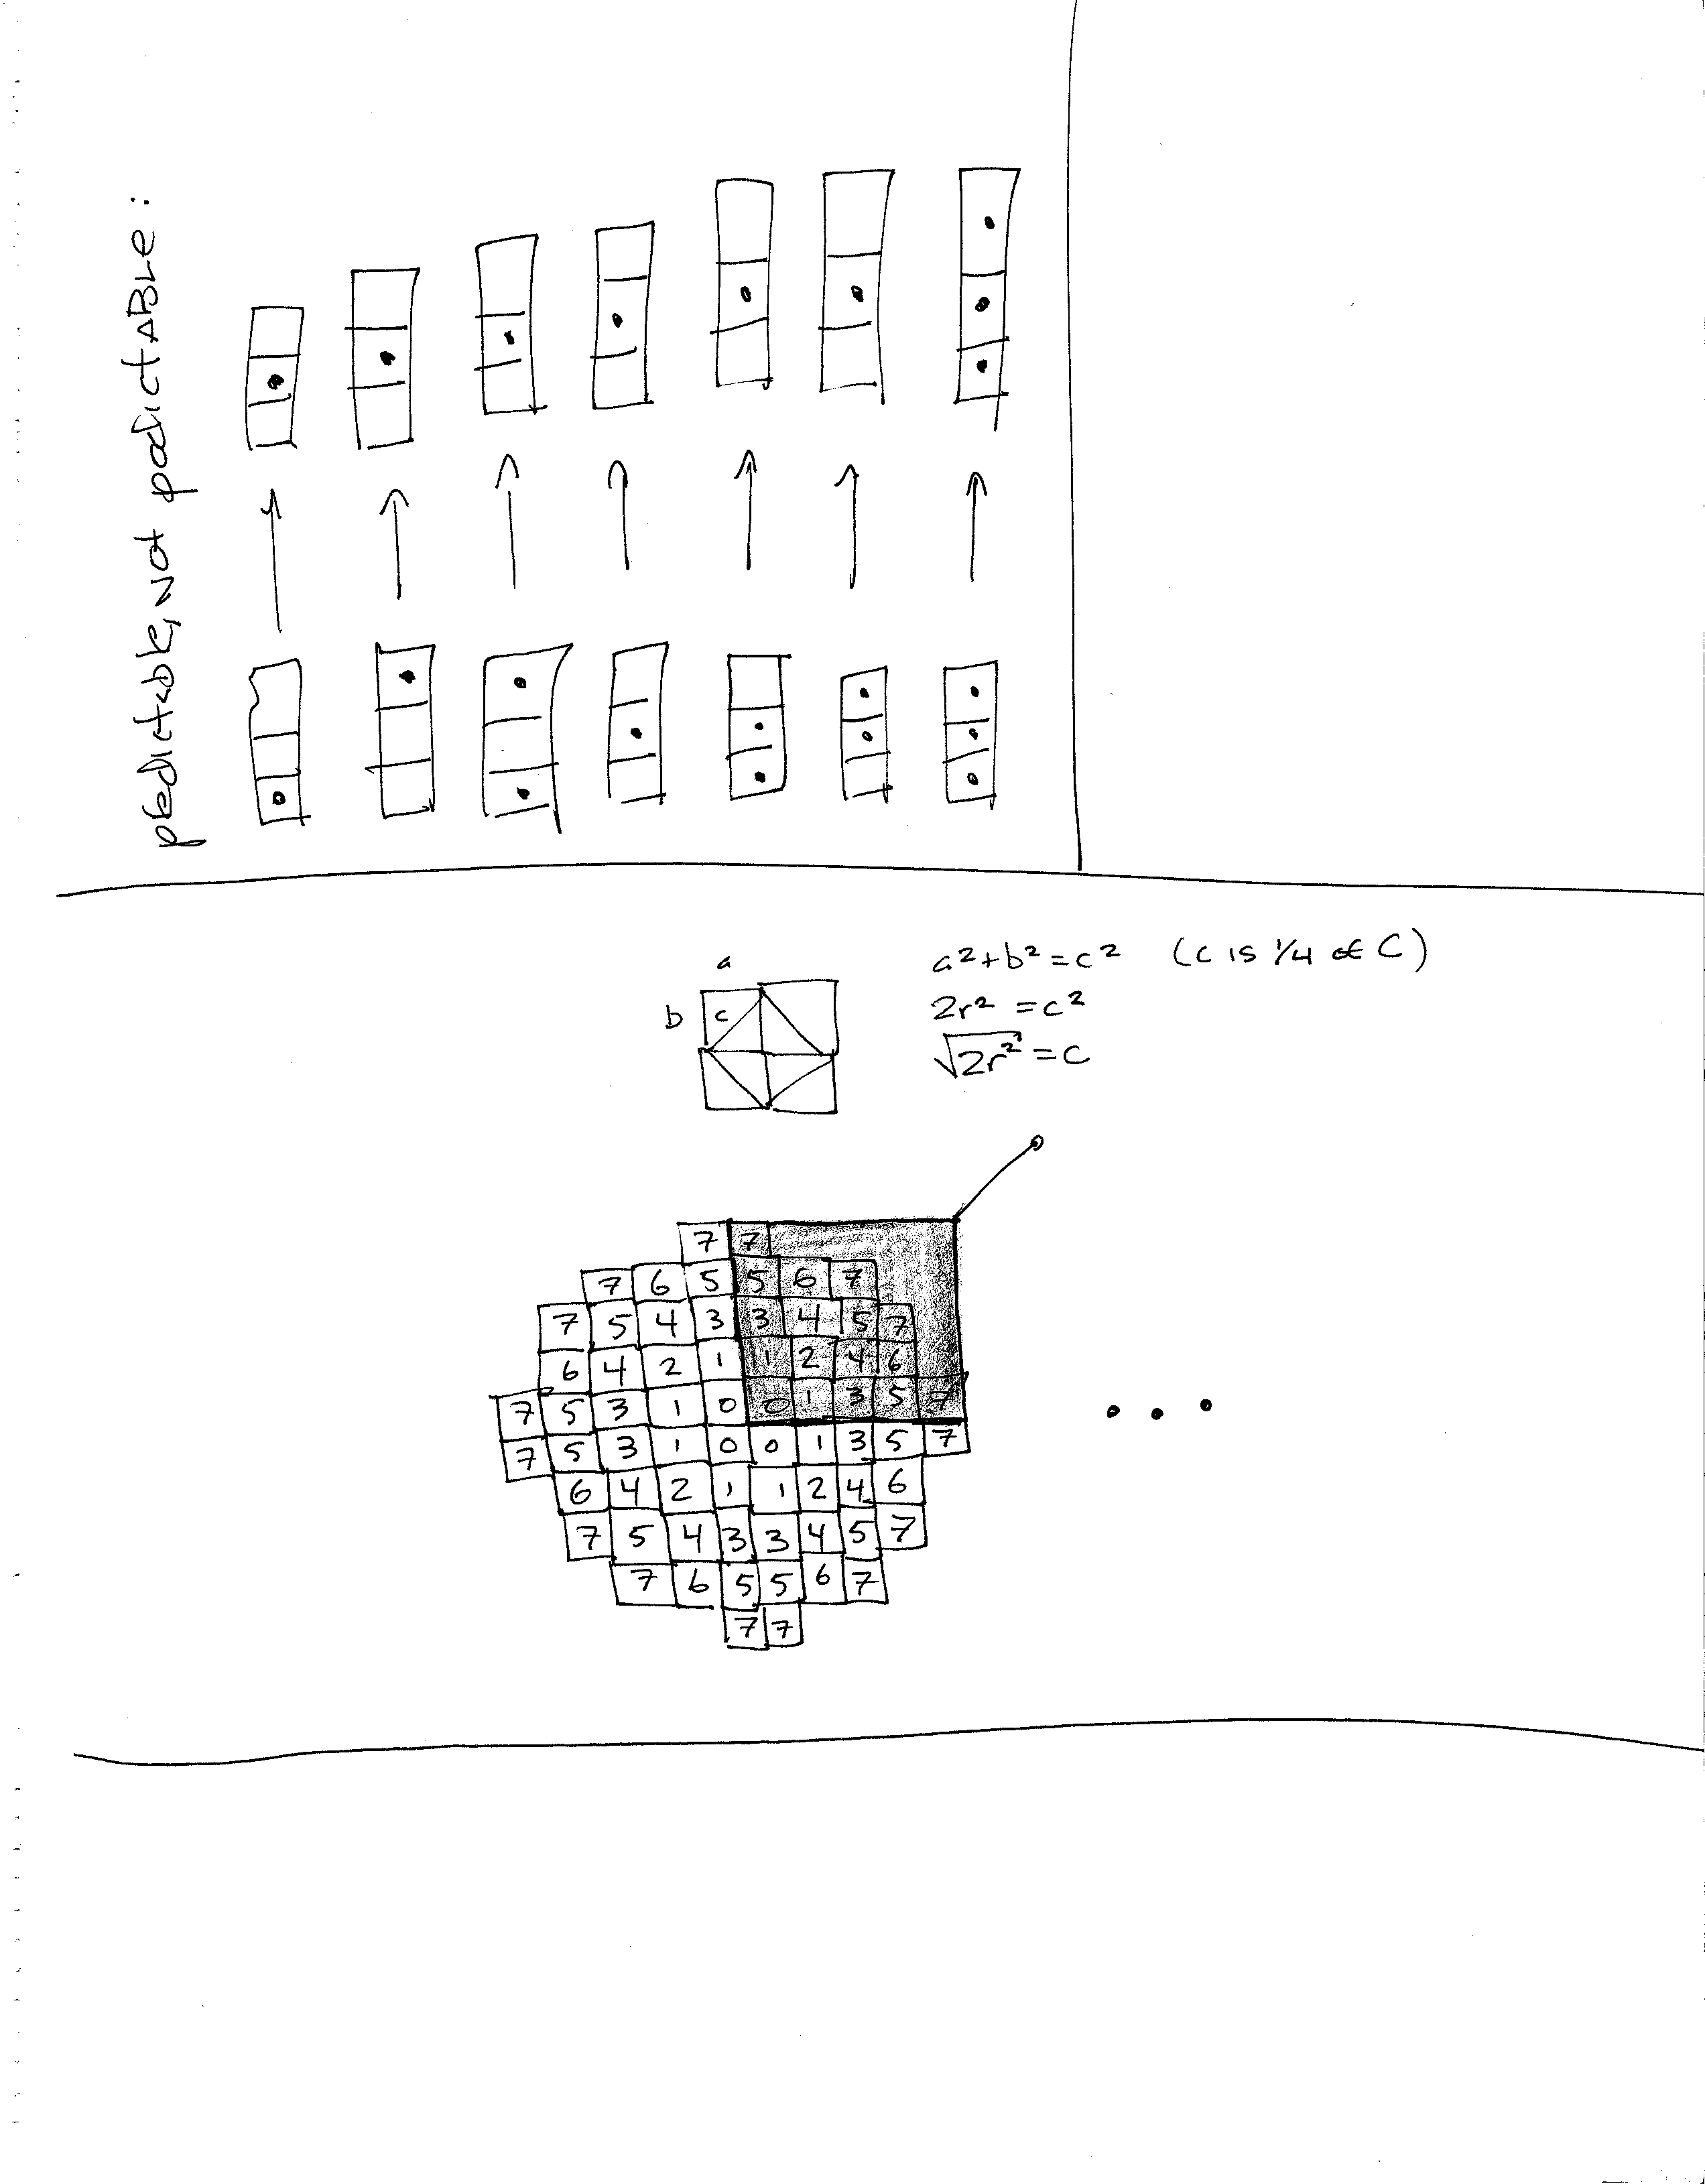 predictable, not podictABLE:
a
b
c
a²+b²=c² (c is ¼ of C)
2r² = c²
√2r² = c
7 7
7 6 5 5 6 7
7 5 4 3 3 4 5 7
6 4 2 1 1 2 4 6
7 5 3 1 0 0 1 3 5 7
7 5 3 1 0 0 1 3 5 7
6 4 2 1 1 2 4 6
7 5 4 3 3 4 5 7
7 6 5 5 6 7
7 7